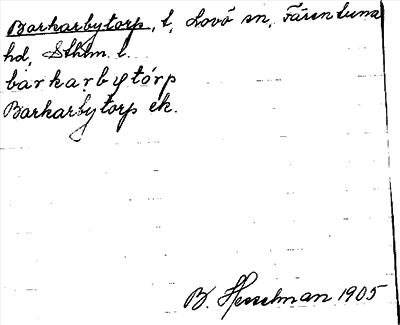 Barkarbytorp, t, Lovö sn, Färentuna
hd, Sthlm l.
barkarbytórp
Barkarbytorp ek.
B. Hesselman 1905